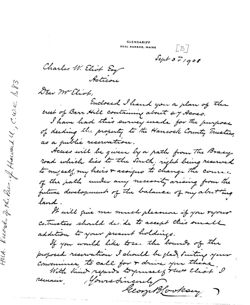 GLENGARIFF
SEAL HARBOR, MAINE
Sept 3d 1908
Charles W. Eliot Esq
Asticou
Dear Mr Eliot,
Enclosed I hand you a plan of the
crest of Barr Hill containing about 2 7 acres.
I have had this survey made for the purpose
of deeding the property to the Hancock County Trustees
as a public reservation.
Access will be given by a path from the Bracy
road which lies to the South, right being reserved
to myself, my heirs & assigns to change the course
of the path under any necessity arising from the
future development of the balance of my abutting
land.
It will give me much pleasure if you & your
cotrustees should decide to accept this small
addition to your present holdings.
If you would like to see the bounds of this
proposed reservation I should be glad, suiting your
convenience to call for & drive you there.
With kind regards to yourself & Mrs Eliot I
remain,
Yours Sincerely,
George B Cooksey